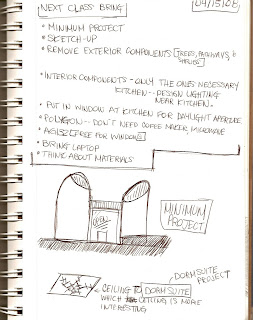 NEXT CLASS BRING
04/15/08
• MINIMUM PROJECT
• SKETCH-UP
• REMOVE EXTERIOR COMPONENTS (TREES, PATHWAYS, &
SHRUBS
• INTERIOR COMPONENTS - ONLY THE ONES NECESSARY
KITCHEN -- DESIGN LIGHTING
NEAR KITCHEN.
• PUT IN WINDOW AT KITCHEN FOR DAYLIGHT
• POLYGON -- DON'T NEED COFFEE MAKER, MICROWAVE
FOR WINDOWS
• BRING LAPTOP
• THINK ABOUT MATERIALS
OPEN
MINIMUM
PROJECT
DORMSUITE
PROJECT
CEILING TO DORMSUITE
WHICH CEILING IS MORE
INTERESTING